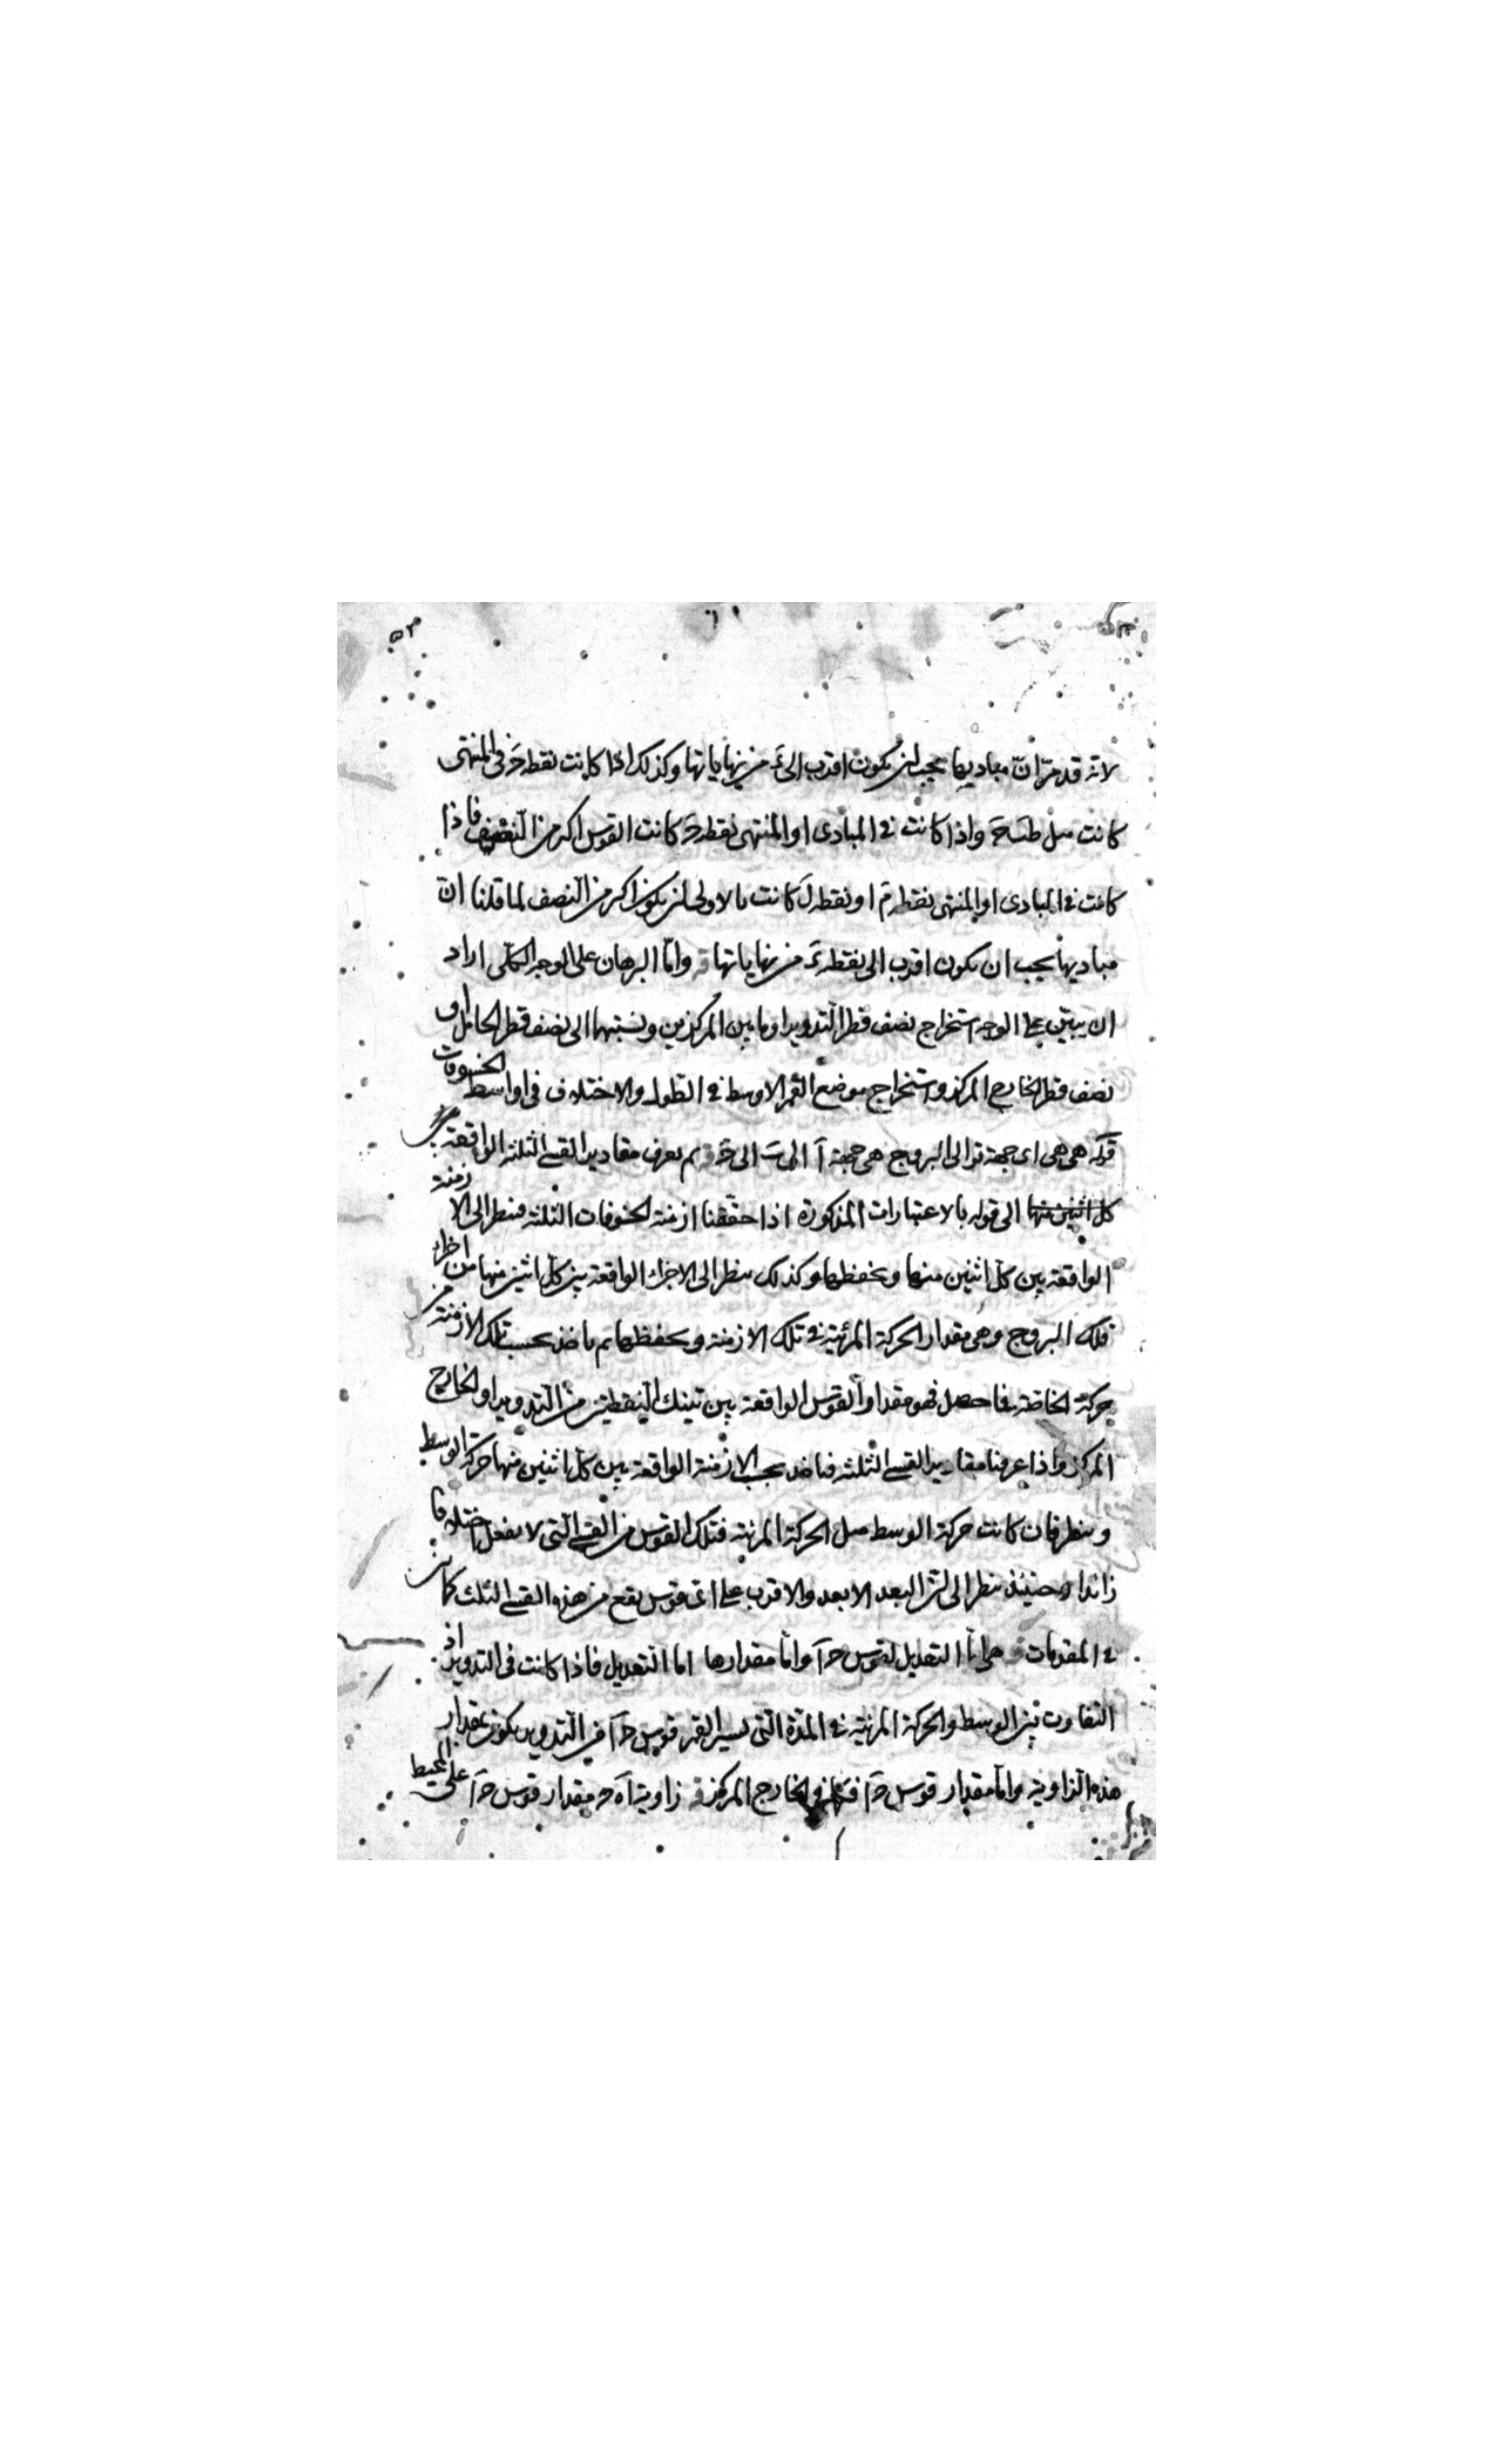 ٥٣
لانه قد مرّ انّ مباديها يجب ان يكون اقرب الى ءَ من نهاياتها وكذلك اذا كانت نقطة حَ فى المنتهى
كانت مثل واذا كانت فى المبادى او المنتهى نقطة حَ كانت القوس اكبر من النصف فاذا
كانت فى المبادى او المنتهى نقطة مَ او نقطة لَ كانت بالاولى ان يكون اكبر من النصف لما قلنا انّ
مباديها يجب ان يكون اقرب الى نقطة ءَ من نهاياتها قه وامّا البرهان على الوجه الكلّى اراد
ان يبيّن على الوجه استخراج نصف قطر التدوير او ما بين المركزين ونسبتهما الى نصف قطر الحامل او
نصف قطر الخارج المركز واستخراج موضع القمر الاوسط فى الطول والاختلاف فى اواسط الخسوفات
قوله هى هى اى جهة توالى البروج هى جهة آ الى بَ الى حَ قه ثم نعرف مقادير القسى الثلثة الواقعة بين
كل اثنين منها الى قوله بالاعتبارات المذكورة اذا حققنا ازمنة الخسوفات الثلثة فننظر الى الازمنة
الواقعة بين كل اثنين منها ونحفظها وكذلك ننظر الى الاجزاء الواقعة بين كل اثنين منها من اجزاء
فلك البروج وهى مقدار الحركة المرئية فى تلك الازمنة ونحفظها ثم ناخذ بحسب تلك الازمنة من
حركة الخاصّة فما حصل فهو مقدار القوس الواقعة بين تينك النقطتين من التدوير او الخارج
المركز واذا عرفنا مقادير القسى الثلثة فناخذ بحسب الازمنة الواقعة بين كل اثنين منها حركة الوسط
وننظر فان كانت حركة الوسط مثل الحركة المرئية فتلك القوس من القسى التى لا يفعل اختلافا
زائدا وحينئذ ننظر الى انّ البعد الابعد والاقرب على اىّ قوس يقع من هذه القسى الثلث كما تبين
فى المقدمات قه هى امّا التعديل لقوس حآ وامّا مقدارها امّا التعديل فاذا كانت فى التدوير اذ
التفاوت بين الوسط والحركة المرئية فى المدّة التى يسير القمر قوس حآ من التدوير يكون بمقدار
هذه الزاوية وامّا مقدار قوس حآ فى الخارج المركز قه زاوية آهَ حَ مقدار قوس حآ على المحيط